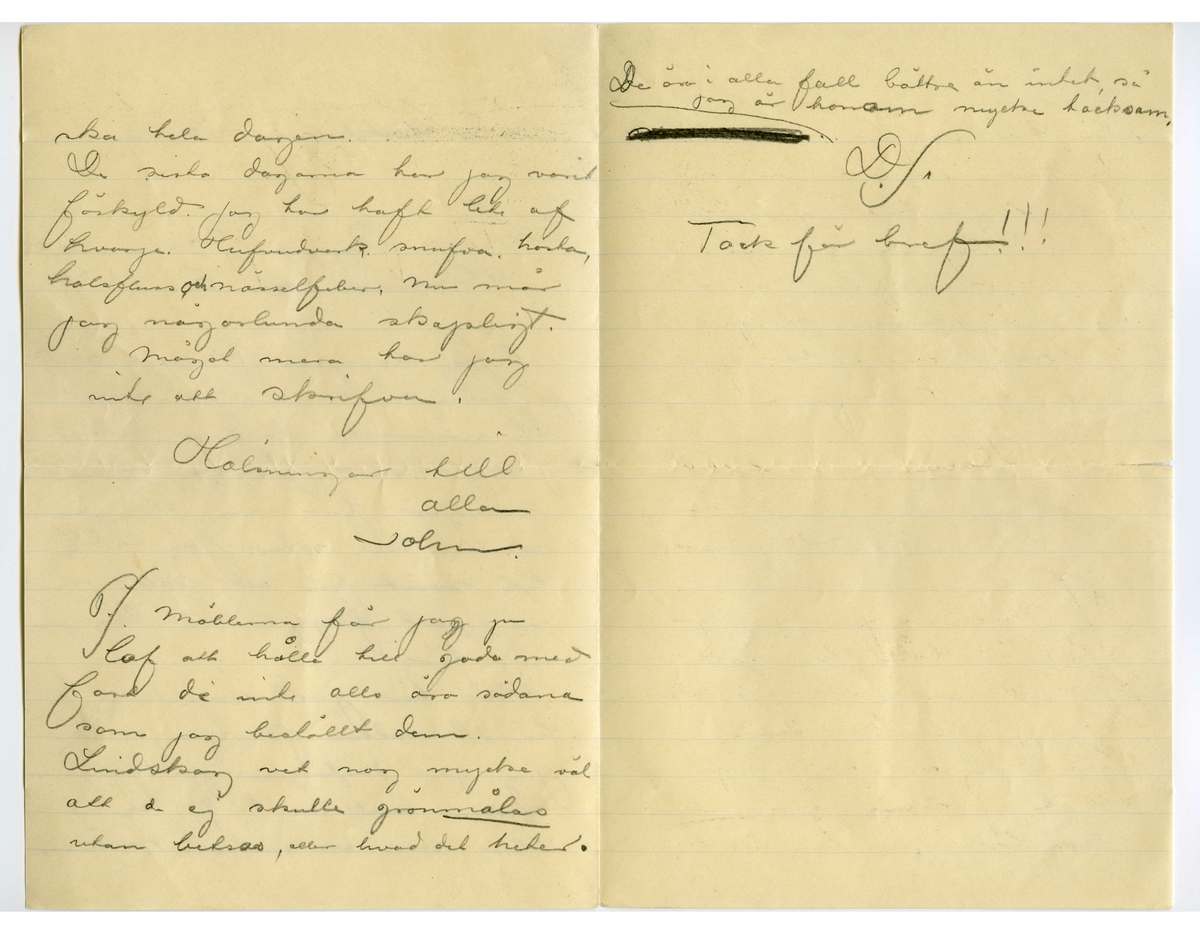 ska hela dagen.
De sista dagarna har jag varit
förkyld. Jag har haft lite af
hvarje. Hufvudverk, snufva, hosta,
halsfluss och nässelfeber. Nu mår
jag någorlunda skapligt.
Något mera har jag
inte att skrifva.
Hälsningar till
alla
John.
P.S. Möblerna får jag ju
lof att hålla till goda med
fast de inte alls äro sådana
som jag beställt dem.
Lindskog vet nog mycke väl
att de ej skulle grönmålas
utan betsas, eller hvad det heter.
De äro i alla fall bättre än intet, så
jag är honom mycke tacksam.
D.S.
Tack för bref!!!